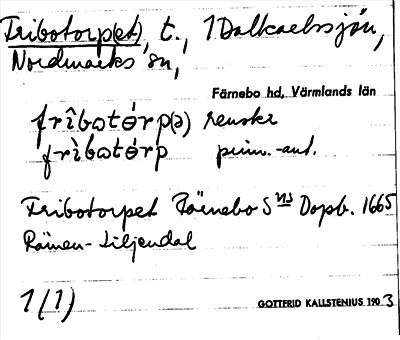 Fribotorp(et), t., 1 Dalkarlssjön,
Nordmarks sn,
Färnebo hd, Värmlands län
frîbωtórp(ə) svenska
frìbωtórp pinn.-ant.
Fribotorpet Färnebo S ns Dopb. 1665
Rämen-Liljendal
1(1)
GOTTFRID KALLSTENIUS 1903